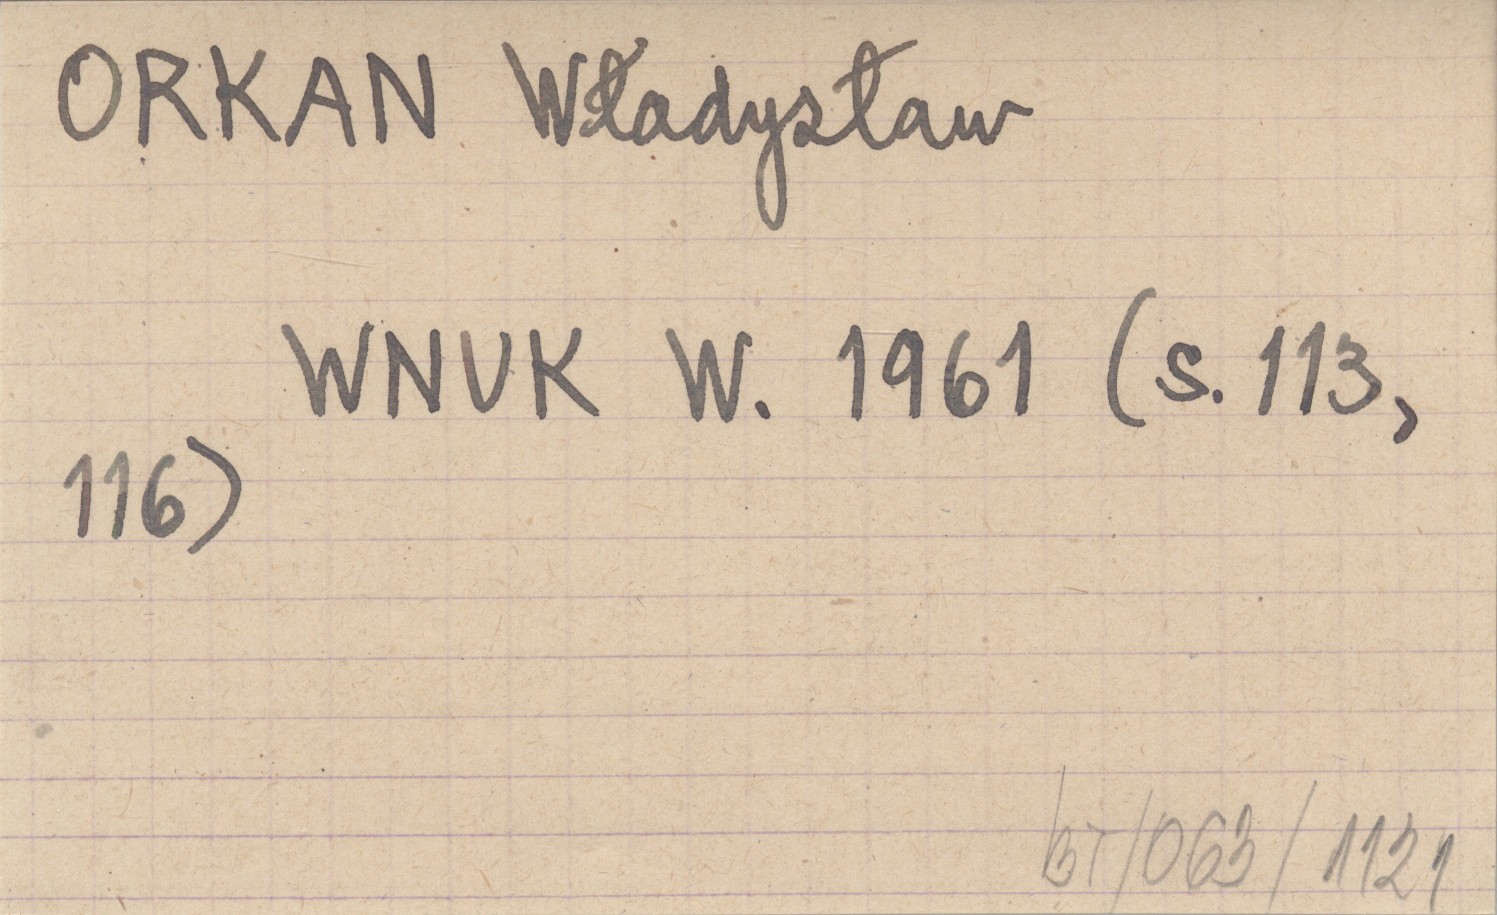 ORKAN Władysław
WNUK W. 1961 (s. 113,
116)
BT/063/1121